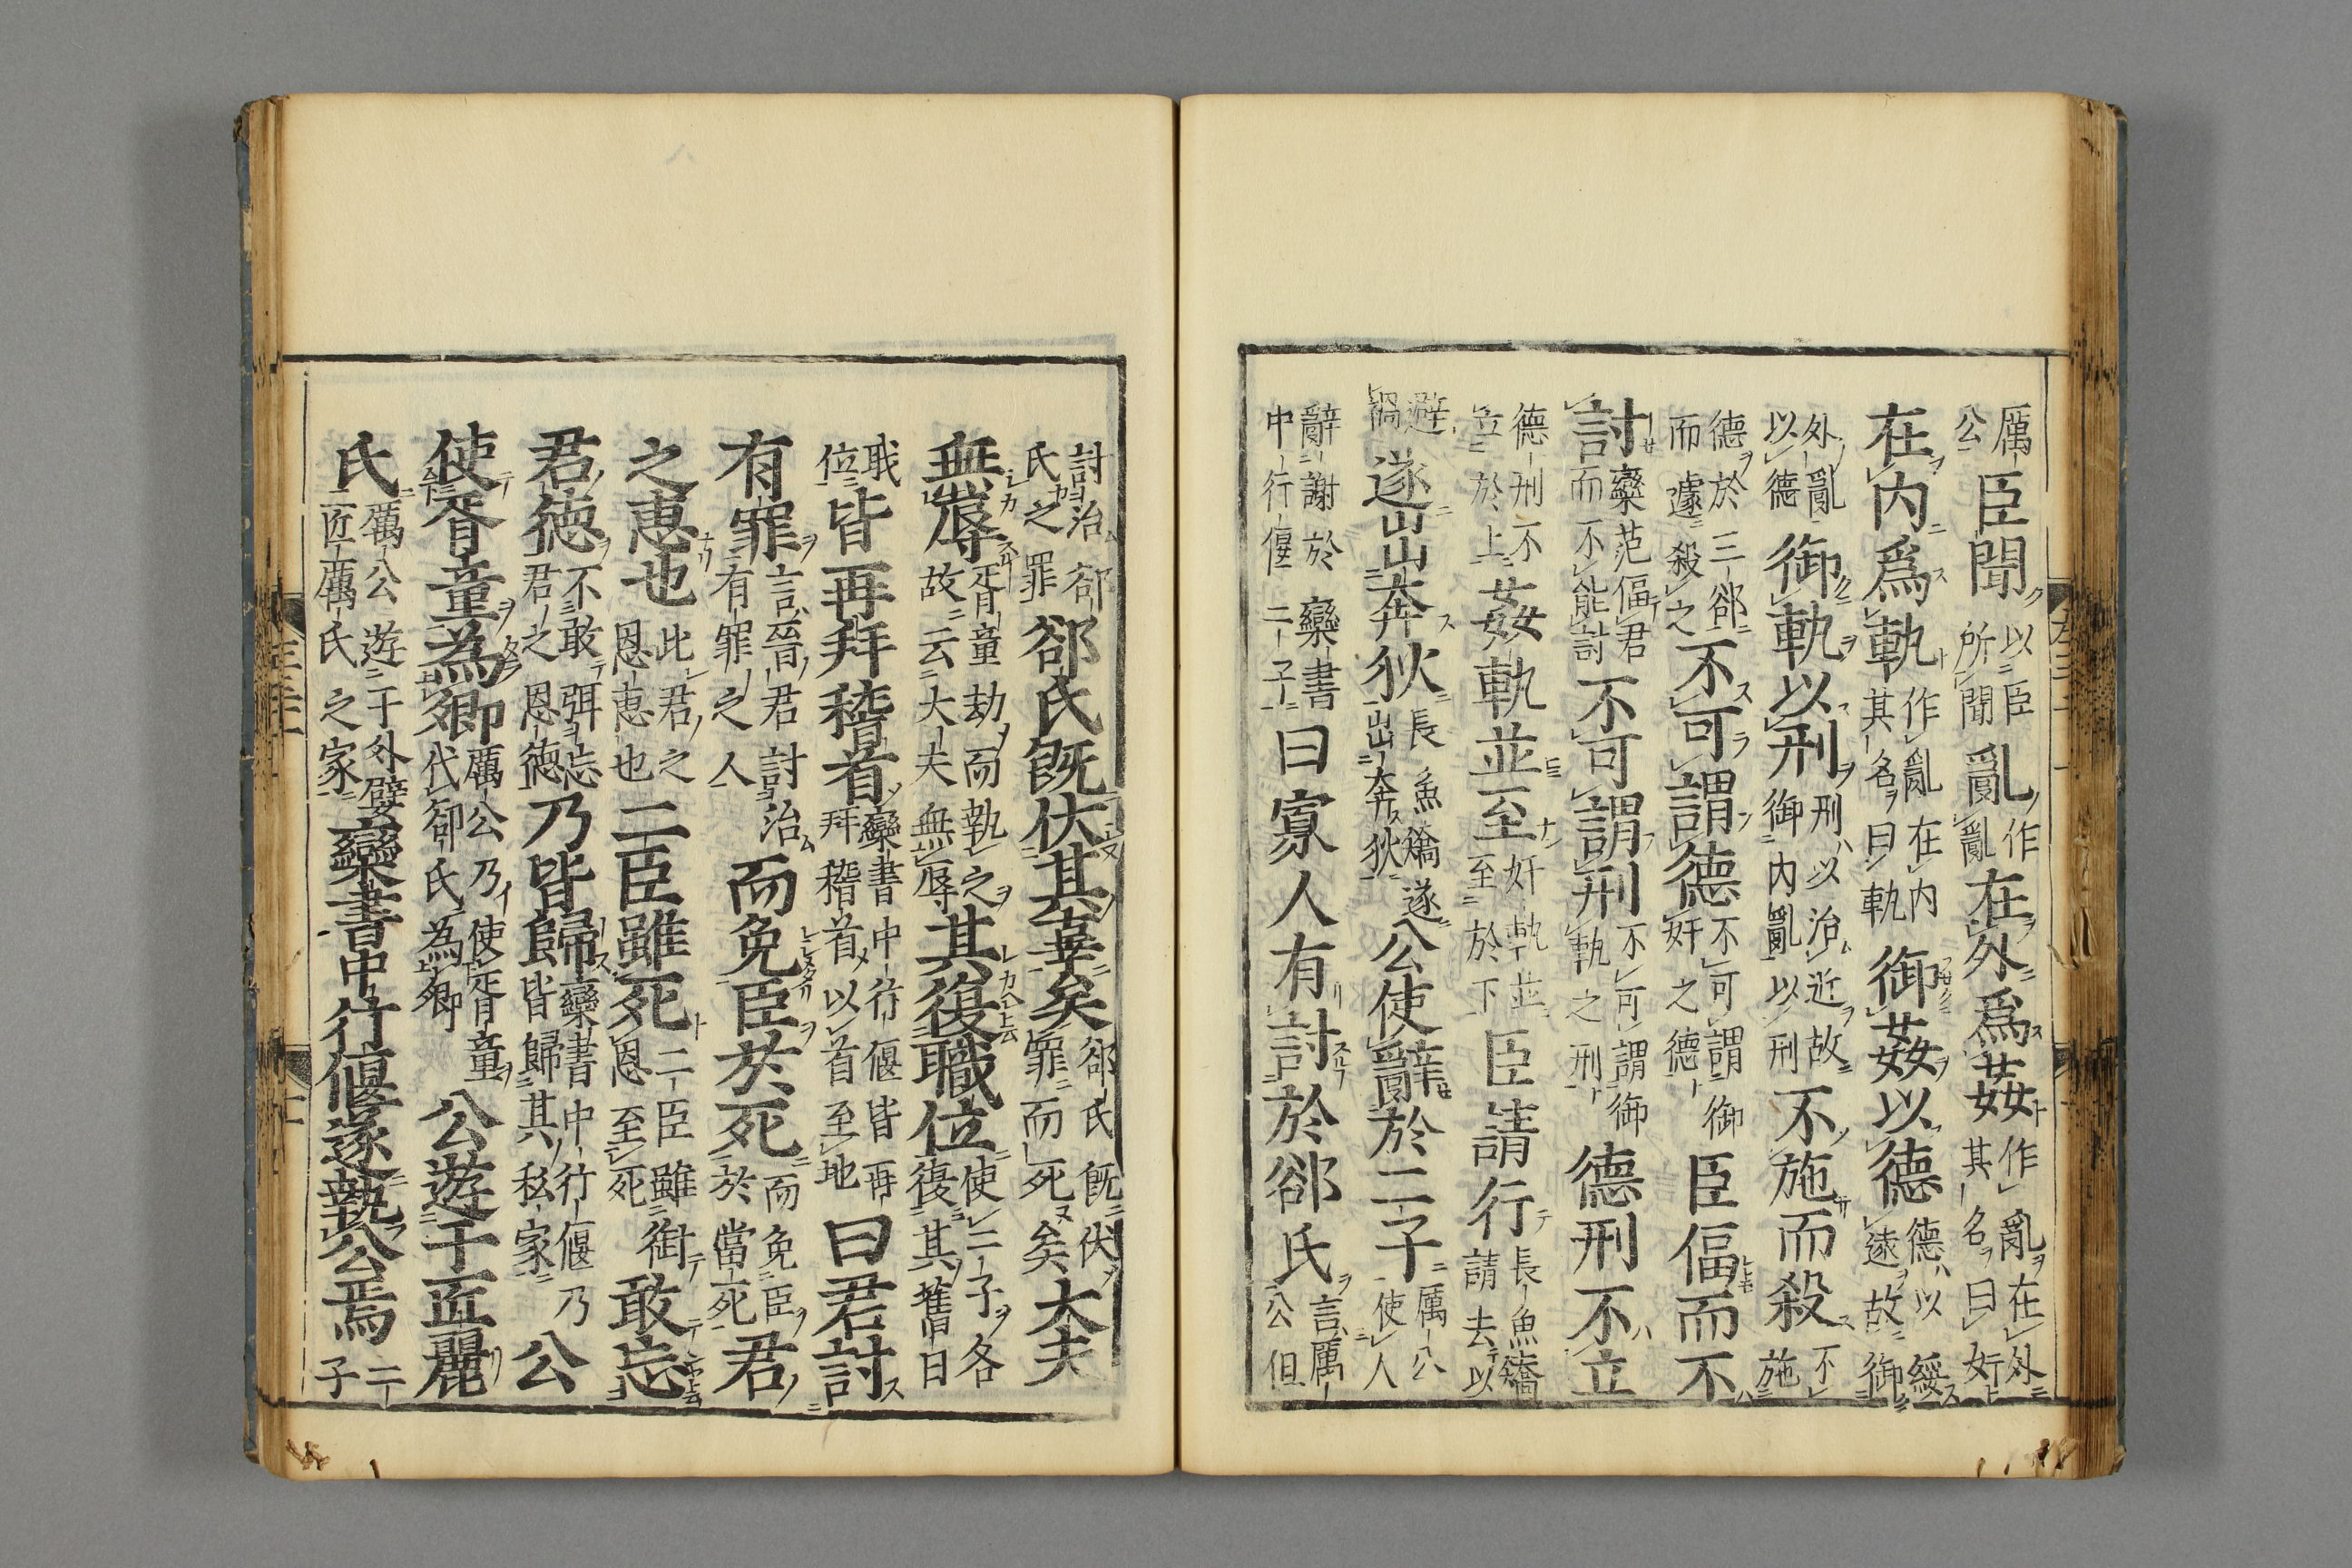 厲公臣聞以臣所聞亂作亂在外爲姦作亂在外其名曰姧
在内爲軌作亂在内其名曰軌御姦以德德以綏遠故御
外亂以德御軌以刑刑以治近故御内亂以刑不施而殺不施
德於三郤而遽殺之不可謂德不可謂御姧之德臣偪而不
討欒范偪君而不能討不可謂刑不可謂御軌之刑德刑不立
德刑不立於上姦軌並至姧軌並至於下臣請行長魚矯請去以
避禍遂出奔狄長魚矯遂出奔狄公使辭於二子厲公使人
辭謝於欒書中行偃二子曰寡人有討於郤氏言厲公但
討治郤氏之罪郤氏既伏其辜矣郤氏既伏罪而死矣大夫
無辱胥童劫而執之故云大夫無辱其復職位使二子各復其舊日
職位皆再拜稽首欒書中行偃皆再拜稽首以首至地曰君討
有罪言晉君討治有罪之人而免臣於死而免臣於當死君
之惠也此君之恩惠也二臣雖死二臣雖至死恩敢忘
君德不敢弭忘君之恩德乃皆歸欒書中行偃乃皆歸其私家公
使胥童為卿厲公乃使胥童代郤氏為卿公遊于匠麗
氏厲公遊于外嬖匠麗氏之家欒書中行偃遂執公焉二子